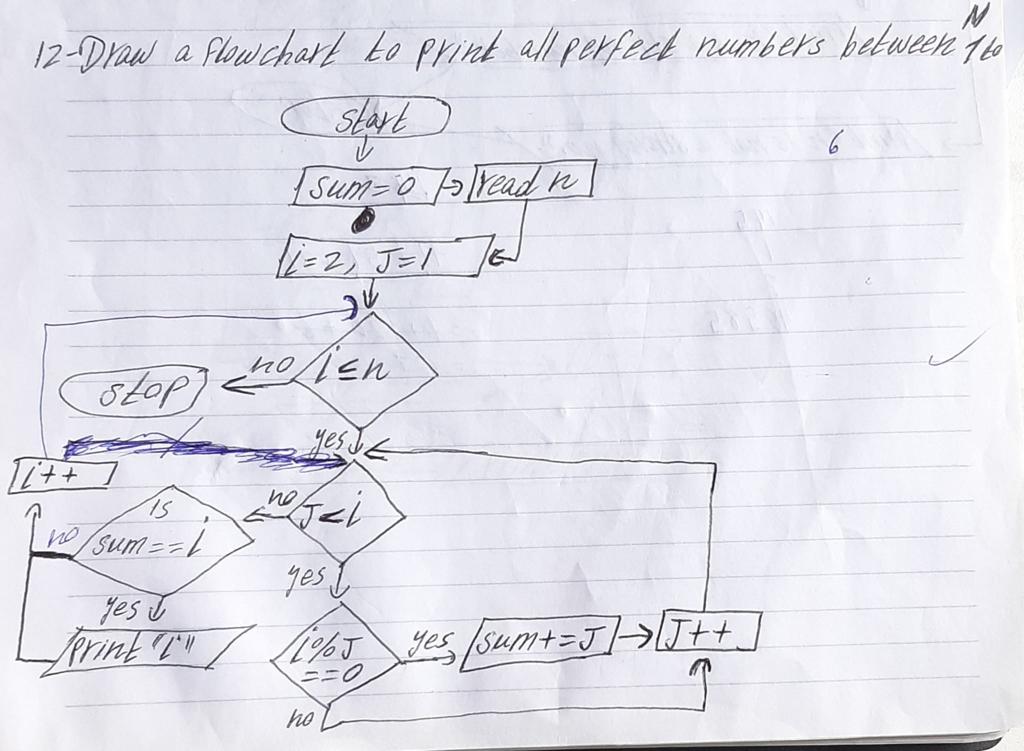 N
12-Draw a flowchart to print all perfect numbers between 1 to
start
6
sum=0
read n
i=2, J=1
i≤n
no
stop
yes
i++
J<i
no
is
sum==i
no
yes
yes
print "i"
i%J
==0
yes
sum+=J
J++
no